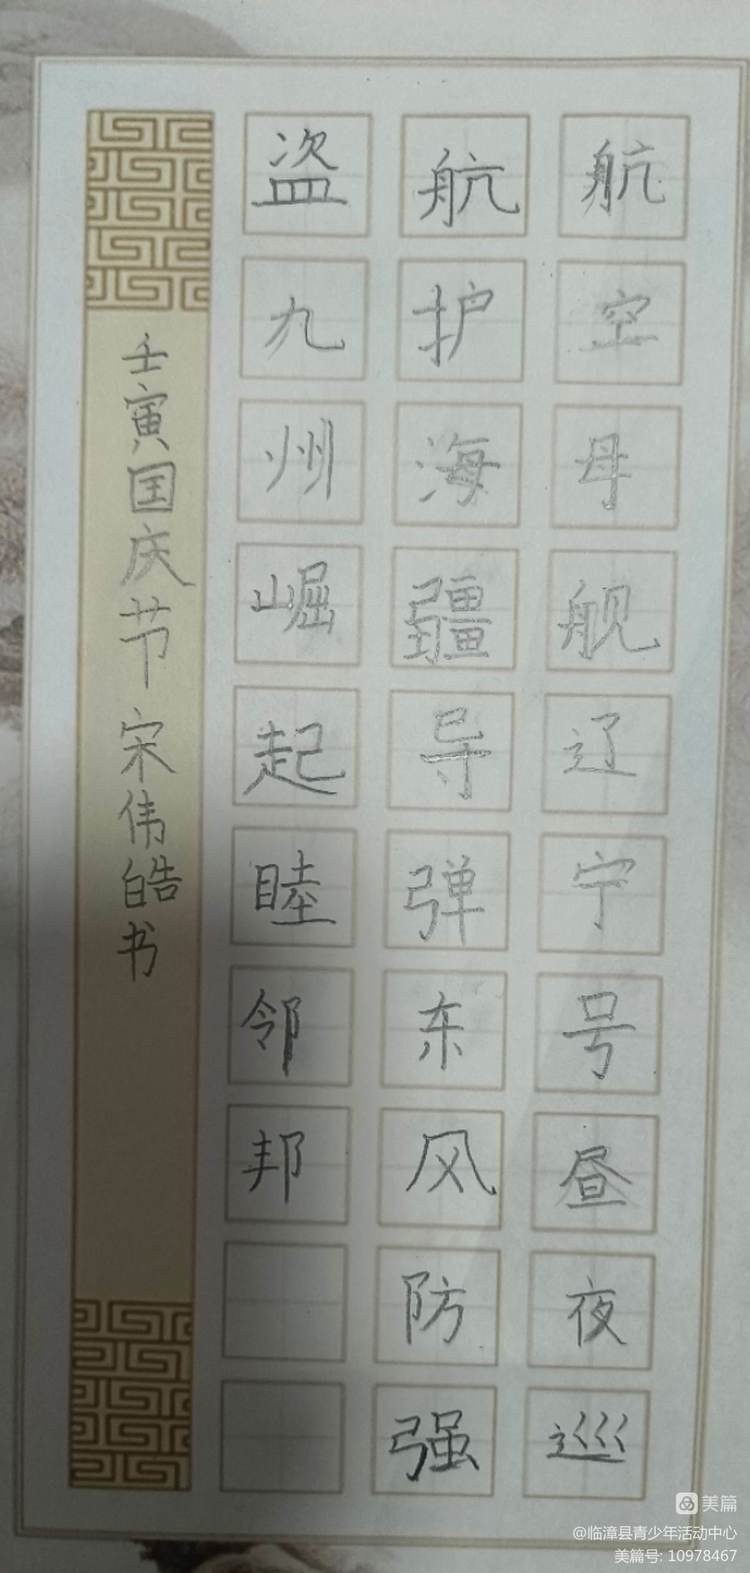 航空母舰辽宁号昼夜巡
航护海疆导弹东风防强
盗九州崛起睦邻邦
壬寅国庆节 宋伟皓书
美篇
@临漳县青少年活动中心
美篇号: 10978467